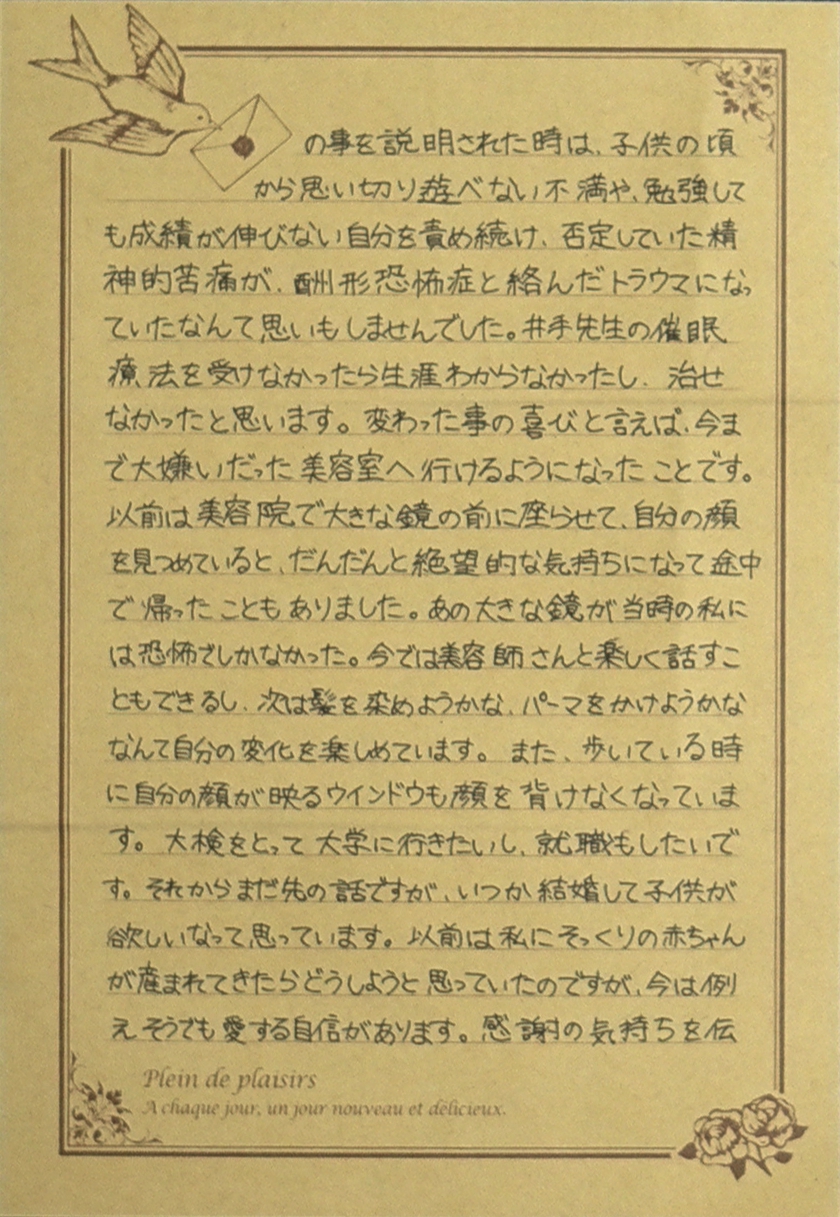 の事を説明された時は、子供の頃
から思い切り遊べない不満や、勉強して
も成績が伸びない自分を責め続け、否定していた精
神的苦痛が、醜形恐怖症と絡んだトラウマになっ
ていたなんて思いもしませんでした。井手先生の催眠
療法を受けなかったら生涯わからなかったし、治せ
なかったと思います。変わった事の喜びと言えば、今ま
で大嫌いだった美容室へ行けるようになったことです。
以前は美容院で大きな鏡の前に座らせて、自分の顔
を見つめていると、だんだんと絶望的な気持ちになって途中
で帰ったこともありました。あの大きな鏡が当時の私に
は恐怖でしかなかった。今では美容師さんと楽しく話すこ
ともできるし、次は髪を染めようかな、パーマをかけようかな
なんて自分の変化を楽しめています。また、歩いている時
に自分の顔が映るウインドウも顔を背けなくなっていま
す。大検をとって大学に行きたいし、就職もしたいで
す。それからまだ先の話ですが、いつか結婚して子供が
欲しいなって思っています。以前は私にそっくりの赤ちゃん
が産まれてきたらどうしようと思っていたのですが、今は例
えそうでも愛する自信があります。感謝の気持ちを伝
Plein de plaisirs
A chaque jour, un jour nouveau et délicieux.